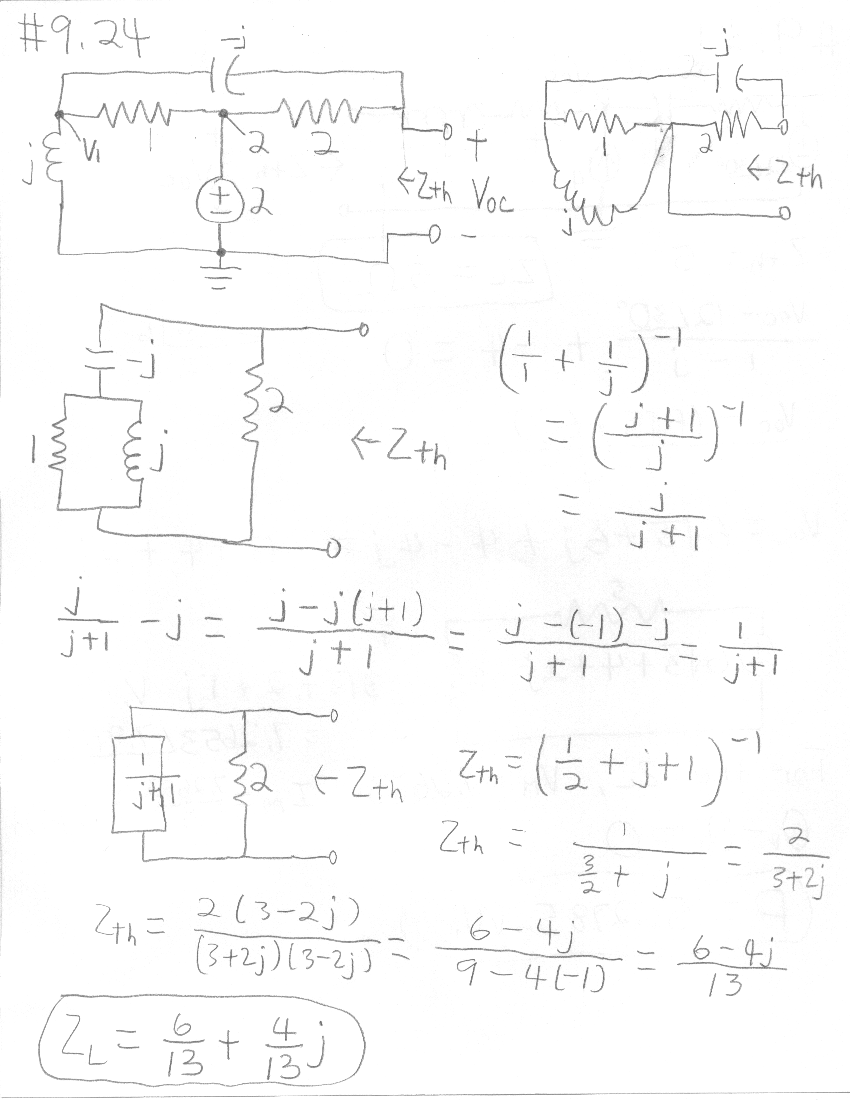 #9.24
-j
-j
1 2 2
1 2
V₁
j
+
2 ←Zth Voc
-
←Zth
j
-j
2
1 j
←Zth
(1/1 + 1/j)⁻¹
= ((j+1)/j)⁻¹
= j/(j+1)
j/(j+1) - j = (j-j(j+1))/(j+1) = (j-(-1)-j)/(j+1) = 1/(j+1)
1/(j+1) 2 ←Zth
Zth = (1/2 + j+1)⁻¹
Zth = 1/(3/2 + j) = 2/(3+2j)
Zth = 2(3-2j)/((3+2j)(3-2j)) = (6-4j)/(9-4(-1)) = (6-4j)/13
ZL = 6/13 + 4/13 j